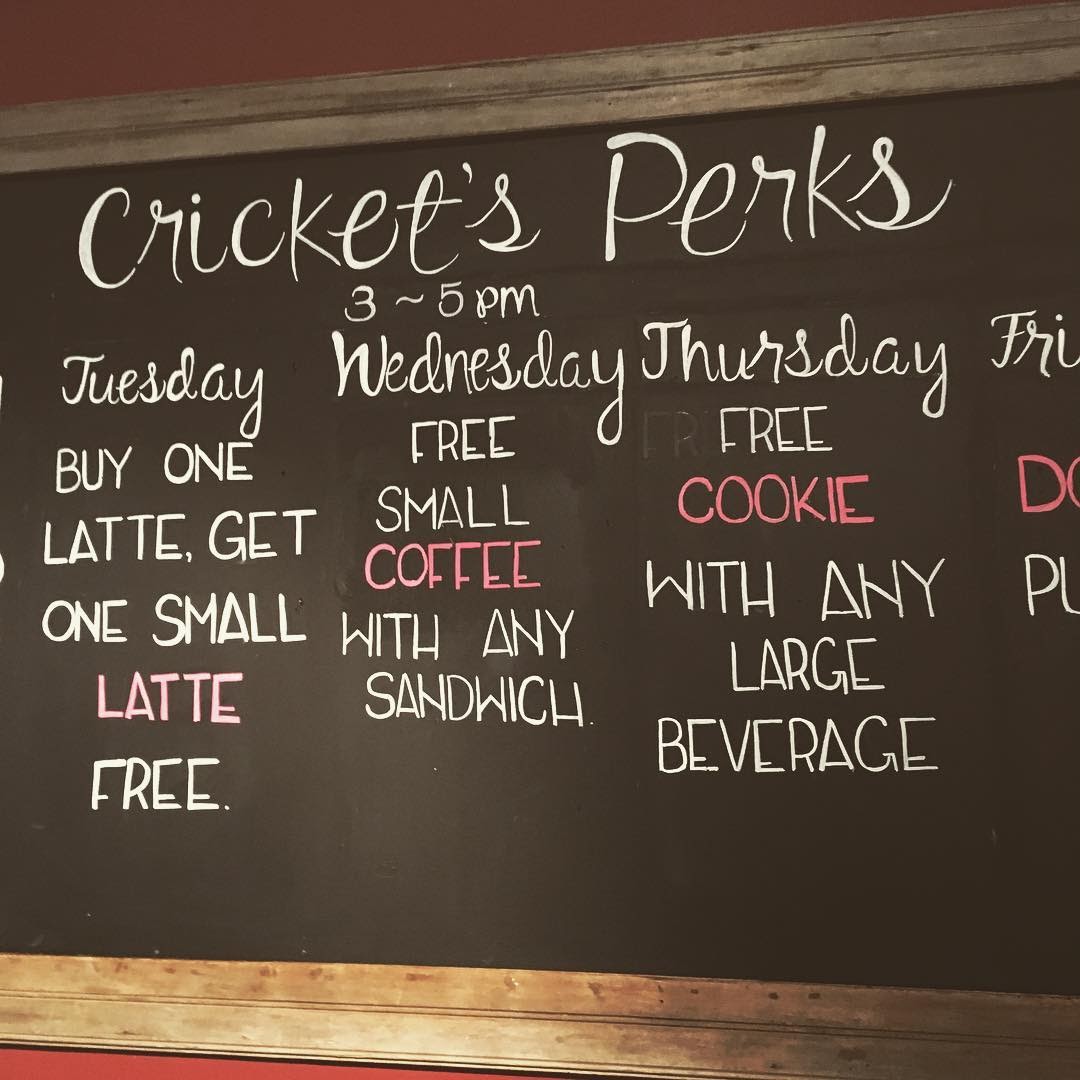 Cricket's Perks
3 ~ 5 pm
Tuesday
BUY ONE
LATTE, GET
ONE SMALL
LATTE
FREE.
Wednesday
FREE
SMALL
COFFEE
WITH ANY
SANDWICH.
Thursday
FREE
COOKIE
WITH ANY
LARGE
BEVERAGE
Fri